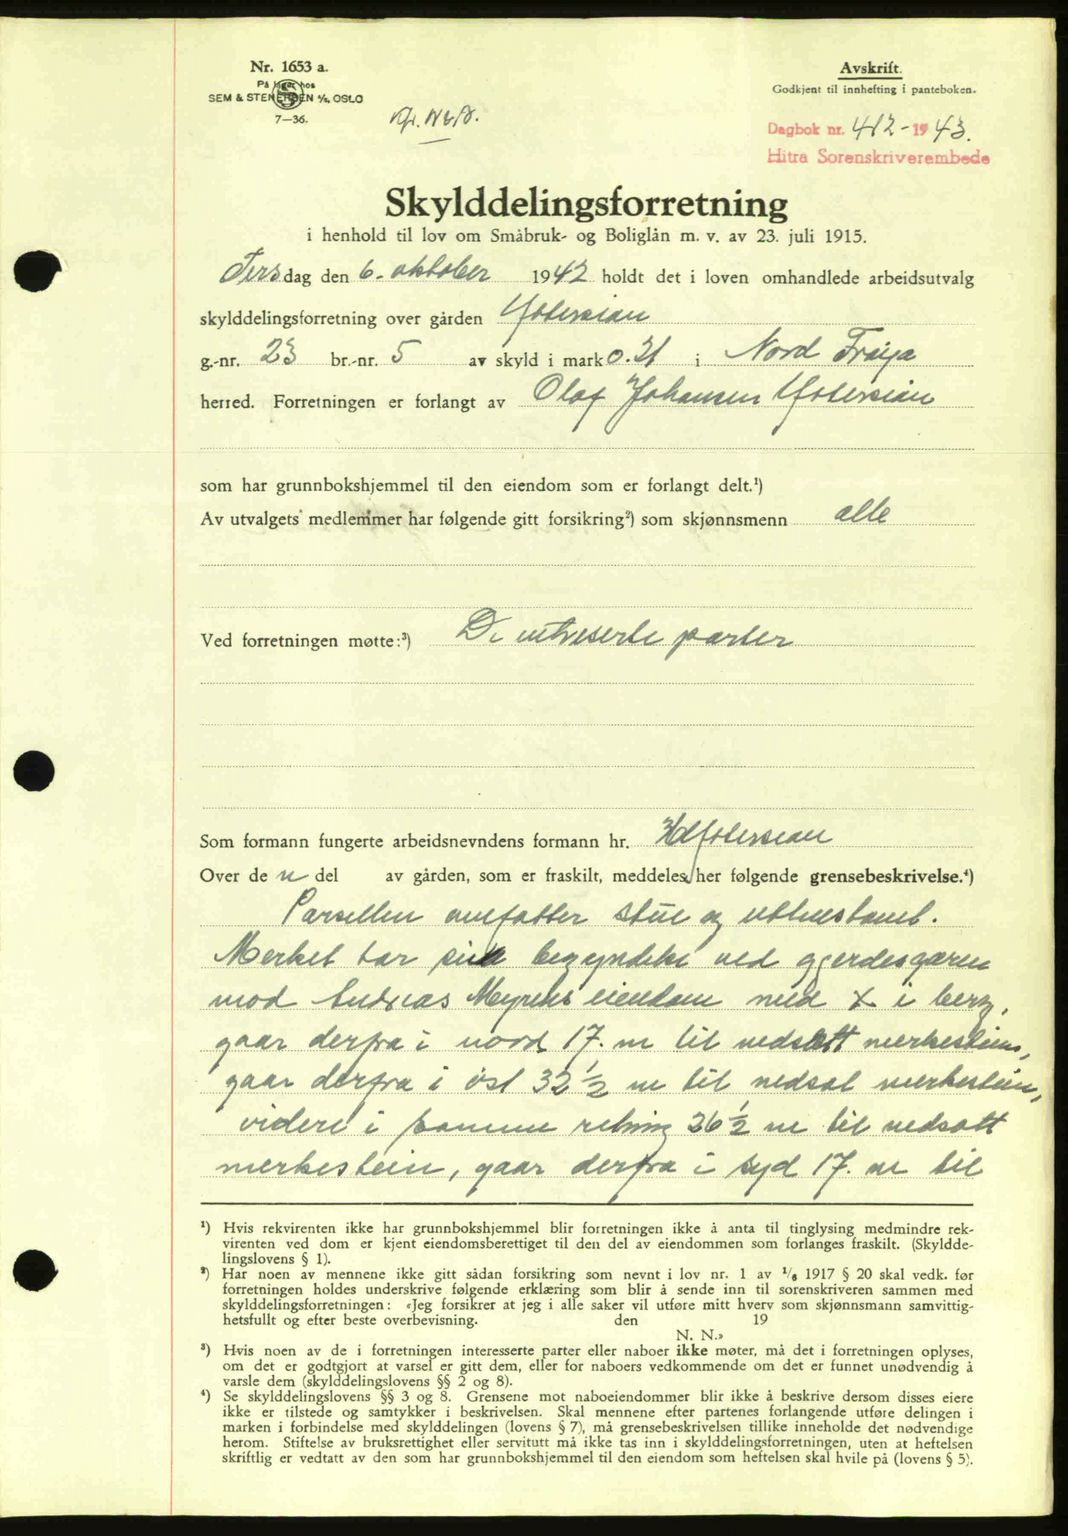 Nr. 1653 a.
På lager hos
SEM & STENERSEN A/S, OSLO
7—36.
Avskrift.
Godkjent til innhefting i panteboken.
Dagbok nr. 412 - 1943.
Hitra Sorenskriverembede
Skylddelingsforretning
i henhold til lov om Småbruk- og Boliglån m. v. av 23. juli 1915.
Tirsdag den 6. oktober 1942 holdt det i loven omhandlede arbeidsutvalg
skylddelingsforretning over gården Ystersian
g.-nr. 23 br.-nr. 5 av skyld i mark 0.21 i Nord Frøya
herred. Forretningen er forlangt av Olaf Johansen Ystersian
som har grunnbokshjemmel til den eiendom som er forlangt delt.¹)
Av utvalgets medlemmer har følgende gitt forsikring²) som skjønnsmenn alle
Ved forretningen møtte:³) De intreserte parter
Som formann fungerte arbeidsnevndens formann hr. Ystersian
Over de n del av gården, som er fraskilt, meddeles her følgende grensebeskrivelse.⁴)
Parsellen omfatter stue og uthustomt.
Merket tar sin begyndelse ved gjerdesgaren
mod Andreas Myrens eiendom med X i berg,
gaar derfra i nord 17. m til nedsatt merkestein,
gaar derfra i øst 32 ½ m til nedsat merkestein,
videre i samme retning 26 ½ m til nedsatt
merkestein, gaar derfra i syd 17. m til
¹) Hvis rekvirenten ikke har grunnbokshjemmel blir forretningen ikke å anta til tinglysing medmindre rek-
virenten ved dom er kjent eiendomsberettiget til den del av eiendommen som forlanges fraskilt. (Skyldde-
lingslovens § 1).
²) Har noen av mennene ikke gitt sådan forsikring som nevnt i lov nr. 1 av 1/6 1917 § 20 skal vedk. før
forretningen holdes underskrive følgende erklæring som blir å sende inn til sorenskriveren sammen med
skylddelingsforretningen: «Jeg forsikrer at jeg i alle saker vil utføre mitt hverv som skjønnsmann samvittig-
hetsfullt og efter beste overbevisning. den 19
N. N.»
³) Hvis noen av de i forretningen interesserte parter eller naboer ikke møter, må det i forretningen oplyses,
om det er godtgjort at varsel er gitt dem, eller for naboers vedkommende om det er funnet unødvendig å
varsle dem (skylddelingslovens §§ 2 og 8).
⁴) Se skylddelingslovens §§ 3 og 8. Grensene mot naboeiendommer blir ikke å beskrive dersom disses eiere
ikke er tilstede og samtykker i beskrivelsen. Skal mennene efter partenes forlangende utføre delingen i
marken i forbindelse med skylddelingen (lovens § 7), må grensebeskrivelsen tillike inneholde det nødvendige
herom. Stiftelse av bruksrettighet eller servitutt må ikke tas inn i skylddelingsforretningen, uten at heftelsen
skriftlig er vedtatt av den som har grunnbokshjemmel til den eiendom som heftelsen skal hvile på (lovens § 5).